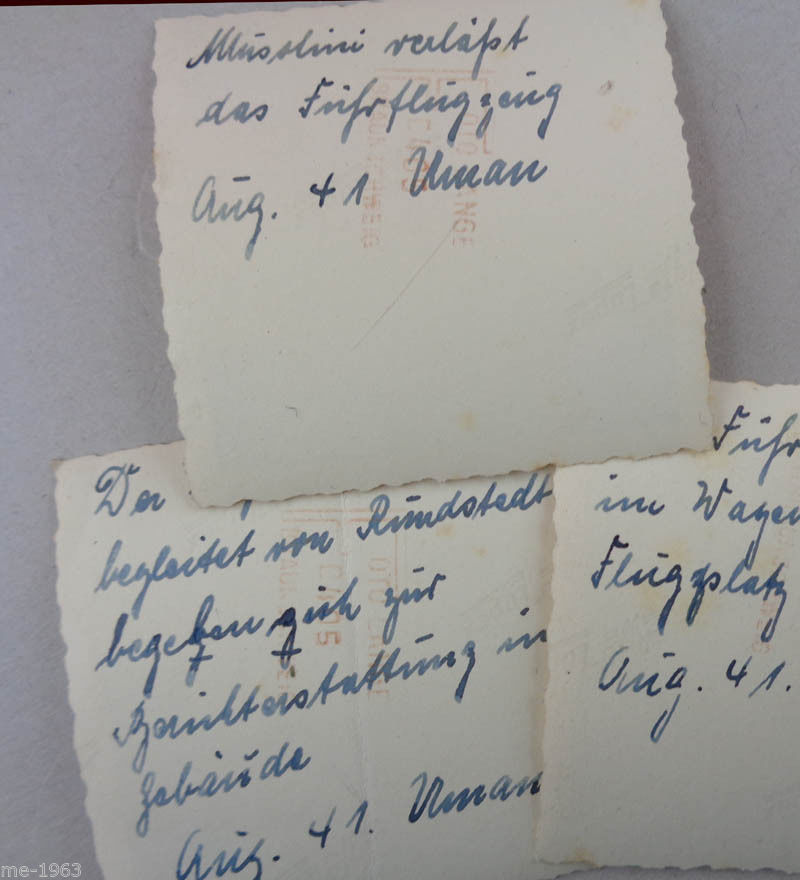 Mussolini verläßt
das Führflugzeug
Aug. 41 Uman
Der
begleitet von Rundstedt
begeben sich zur
Berichterstattung in
Gebäude
Aug. 41. Uman
Führ
im Wagen
Flugplatz
Aug. 41.
me-1963